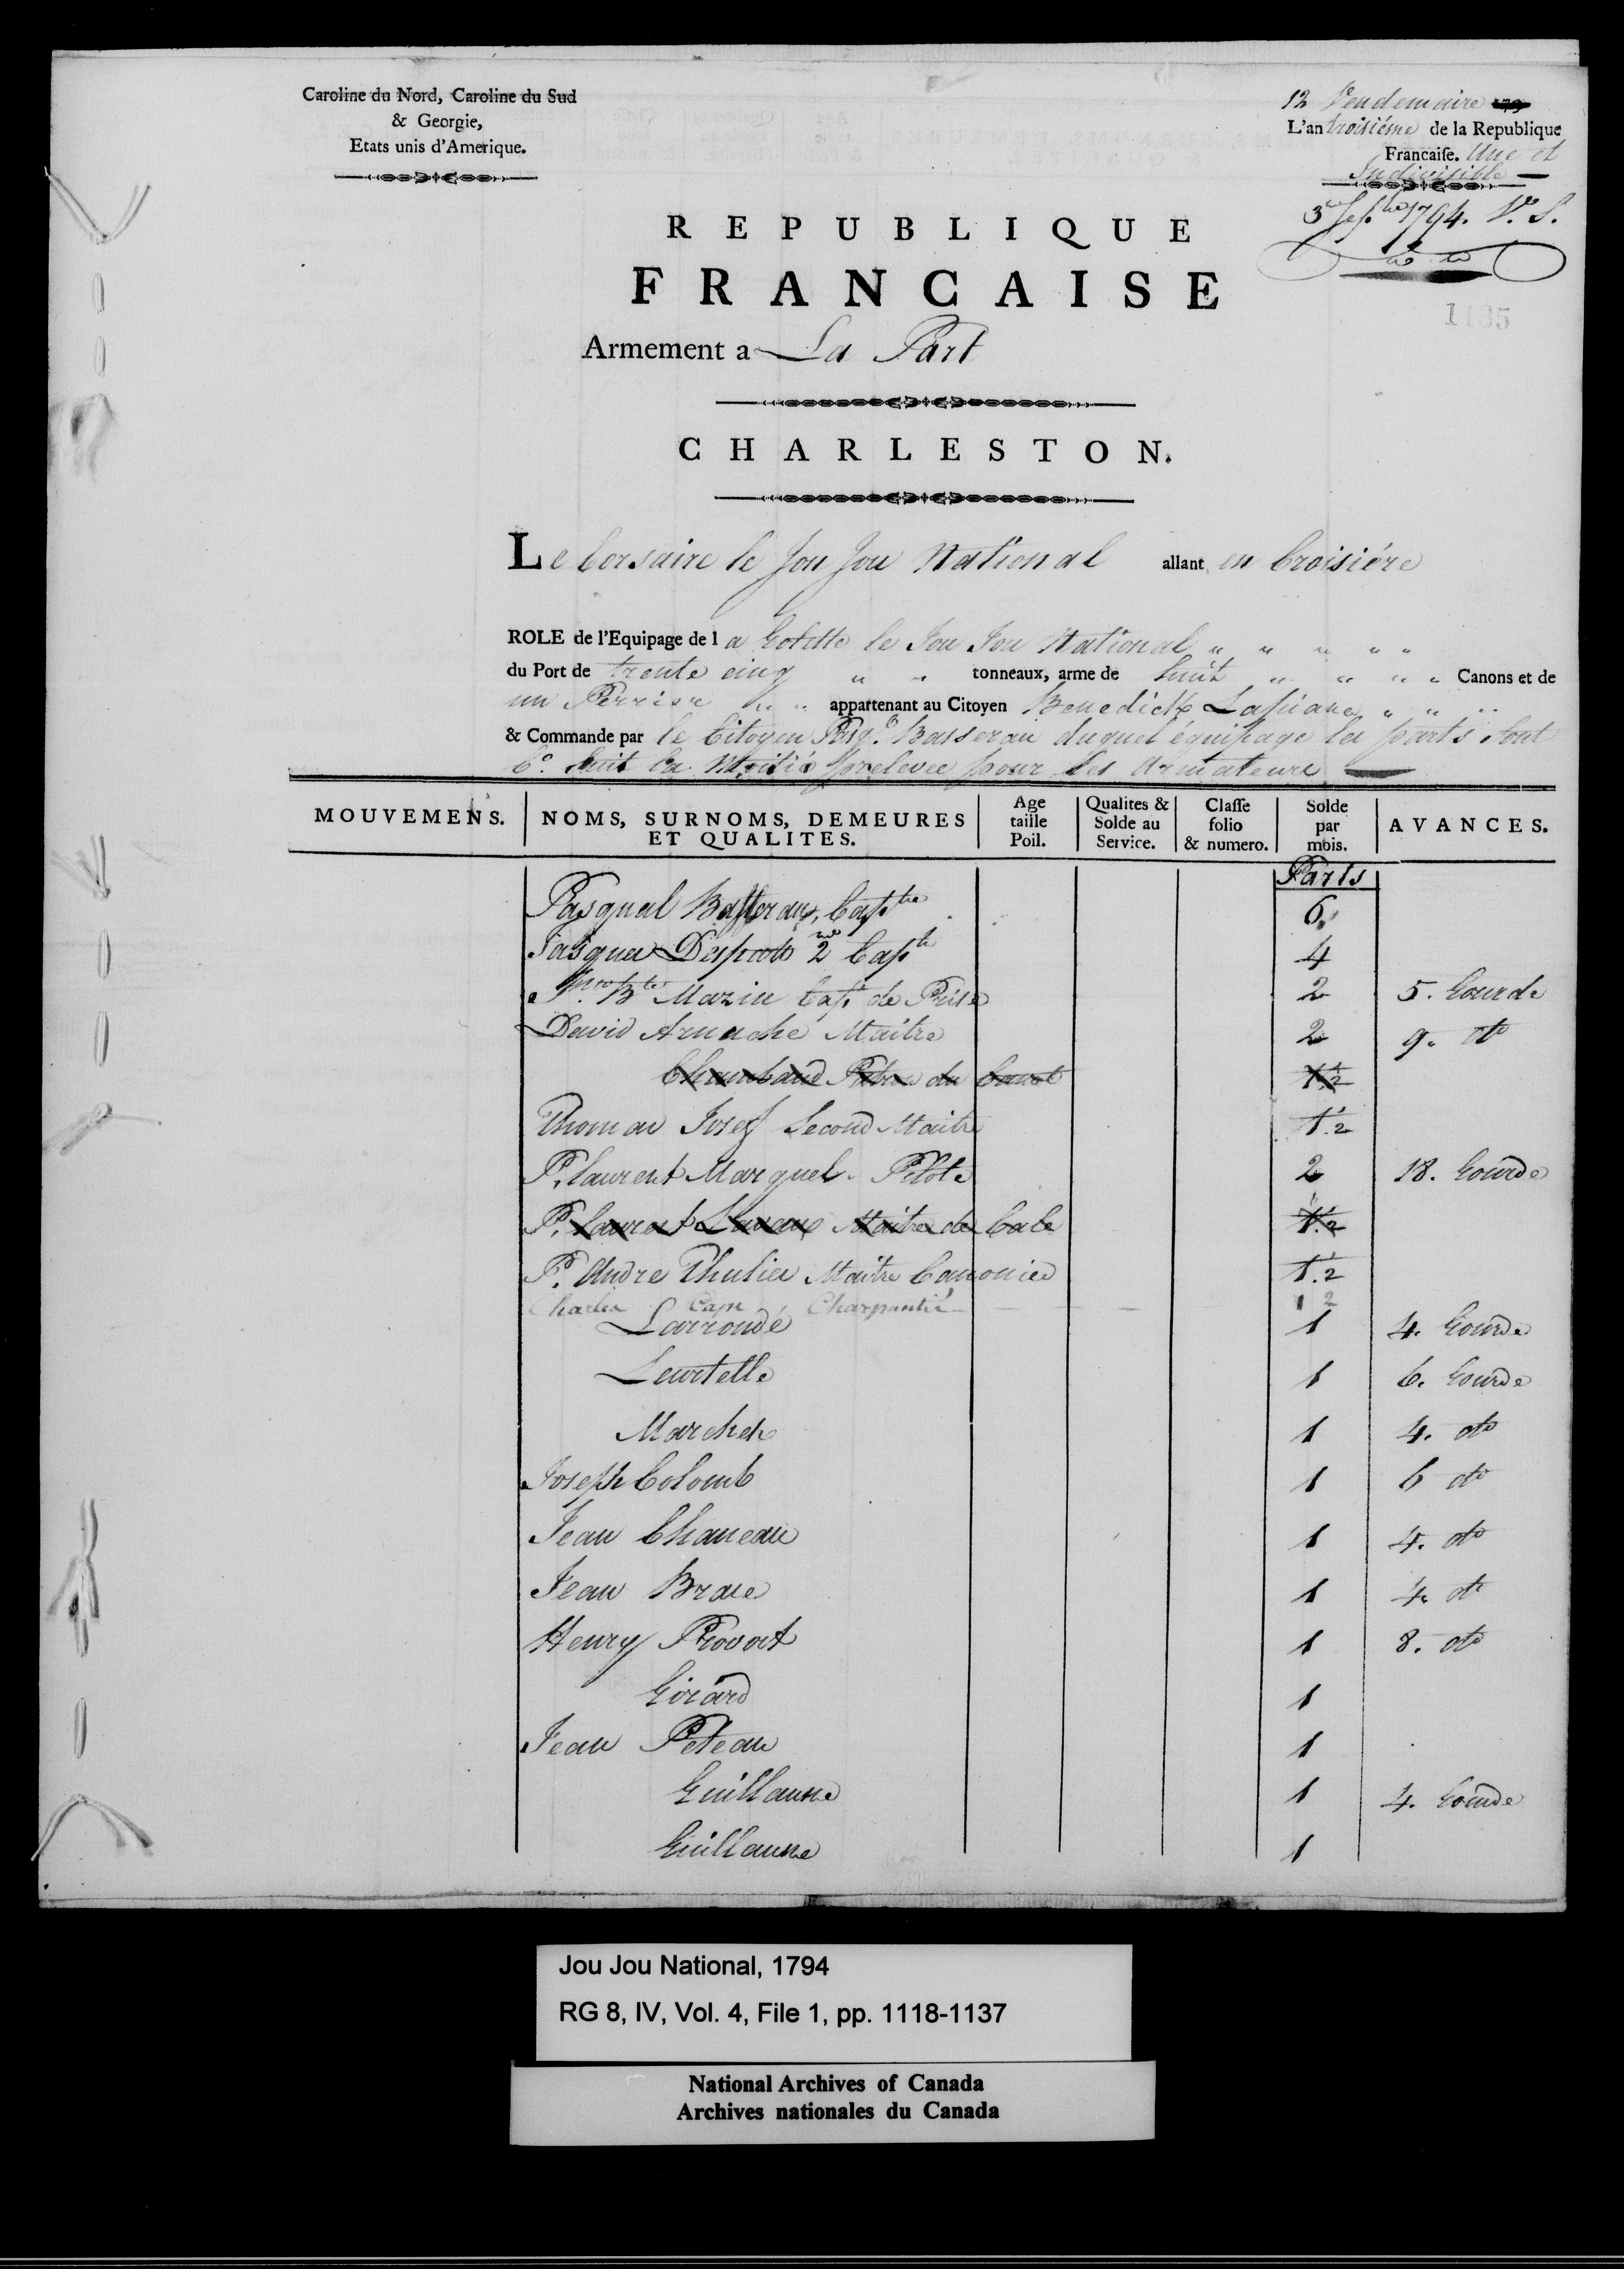 Caroline du Nord, Caroline du Sud
& Georgie,
Etats unis d'Amerique.
12 Vendemaire
L'an troisiéme de la Republique
Francaise. Une et
Indivisible
1794. V. S.
1135
REPUBLIQUE
FRANCAISE
Armement a La Part
CHARLESTON.
Le Corsaire le Jou Jou National allant en Croisiére
ROLE de l'Equipage de la Golette le Jou Jou National " " " " "
du Port de trente cinq " " tonneaux, arme de huit " " " " Canons et de
un Perrier " " appartenant au Citoyen Benedict Lapiane " " "
& Commande par le Citoyen Pasql. Basserau duquel équipage les parts sont
la Moitié prelevée pour les Armateurs
MOUVEMENS. NOMS, SURNOMS, DEMEURES ET QUALITES. Age taille Poil. Qualites & Solde au Service. Classe folio & numero. Solde par mois. AVANCES.
Parts
Pasqual Basserau, Capne 6
Pasqua Despotto 2nd Capte 4
Bte Mazin Capt de Prise 2 5. Gourde
David Arnache Maitre 2 9. do
Chambaud Patron du Canot 1.½
Thomas Josef Second Maitre 1.½
P. Laurent Marquel. Pilote 2 18. Gourde
P. Laurent Maitre de Cale 1.½
P. Andre Thulier Maitre Canonier 1.½
Charles Cape Charpantié 1 2
Larroudé 1 4. Gourde
Leurtelle 1 6. Gourde
Marchek 1 4. do
Joseph Colomb 1 6 do
Jean Chaneau 1 4. do
Jean Braie 1 4. do
Henry Provost 1 8. do
Girard 1
Jean Peteau 1
Guillaume 1 4. Gourde
Guillaume 1
Jou Jou National, 1794
RG 8, IV, Vol. 4, File 1, pp. 1118-1137
National Archives of Canada
Archives nationales du Canada